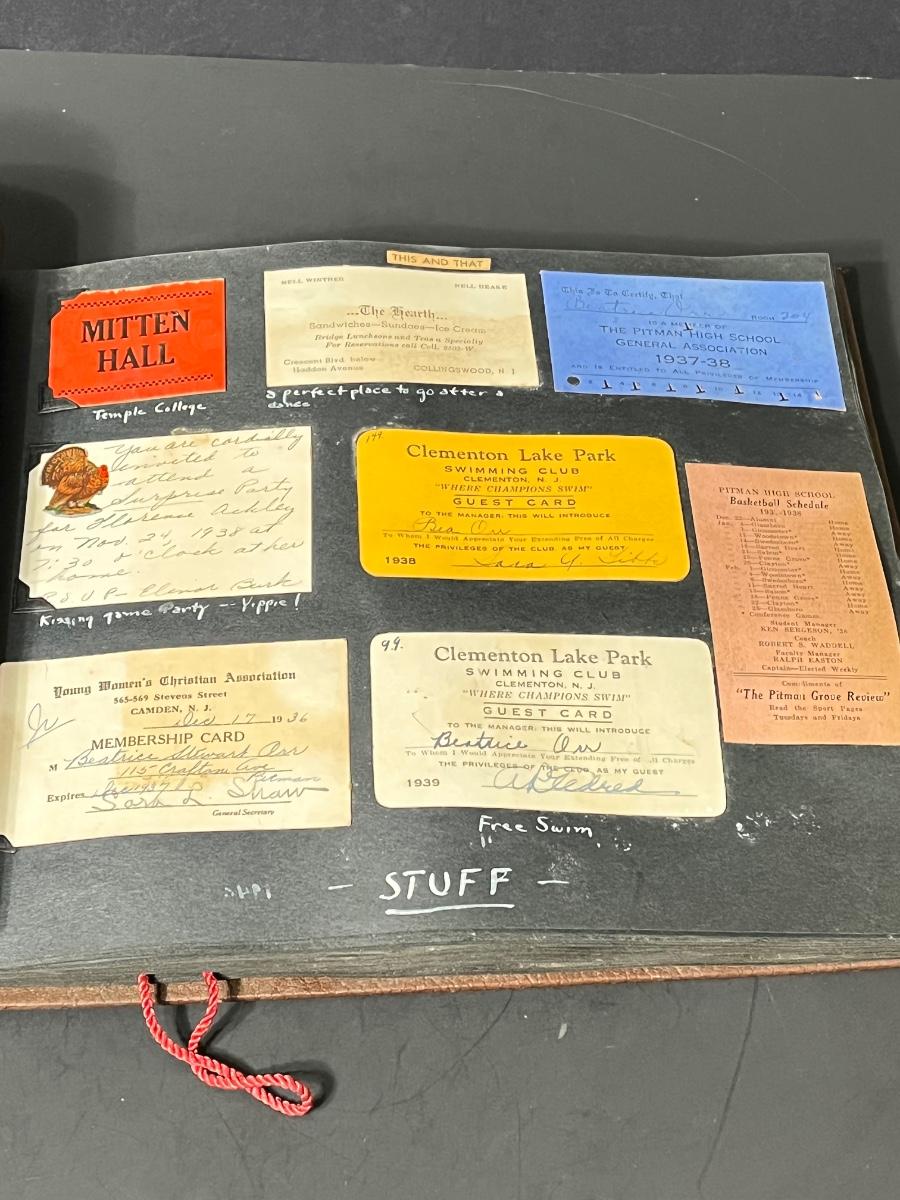 THIS AND THAT
MITTEN
HALL
Temple College
NELL WINTHER
NELL BEAKE
...The Hearth...
Sandwiches—Sundaes—Ice Cream
Bridge Luncheons and Teas a Specialty
For Reservations call Coll.
Crescent Blvd. below
Haddon Avenue
COLLINGSWOOD, N. J.
a perfect place to go after a
dance
This Is To Certify, That
Beatrice Orr
ROOM 204
IS A MEMBER OF
THE PITMAN HIGH SCHOOL
GENERAL ASSOCIATION
1937-38
AND IS ENTITLED TO ALL PRIVILEGES OF MEMBERSHIP
You are cordially
invited to
attend a
Surprise Party
for Florence Ackley
on Nov. 24, 1938 at
7:30 o'clock at her
home.
R.S.V.P— Elenor Burk
Kissing game Party -- Yippie!
144.
Clementon Lake Park
SWIMMING CLUB
CLEMENTON, N. J.
"WHERE CHAMPIONS SWIM"
GUEST CARD
TO THE MANAGER: THIS WILL INTRODUCE
Bea Orr
To Whom I Would Appreciate Your Extending Free of All Charges
THE PRIVILEGES OF THE CLUB, AS MY GUEST
1938
Sara Y.
PITMAN HIGH SCHOOL
Basketball Schedule
1938
Dec. Alumni Home
* Conference Games.
Student Manager
KEN SERGESON, '38
Coach
ROBERT S. WADDELL
Faculty Manager
RALPH EASTON
Captain—Elected Weekly
Compliments of
"The Pitman Grove Review"
Read the Sport Pages
Tuesdays and Fridays
Young Women's Christian Association
565-569 Stevens Street
CAMDEN, N. J.
Jr
Dec 17 1936
MEMBERSHIP CARD
M Beatrice Stewart Orr
115 Crafton Ave
Pitman
Expires Dec 1937
Sara L. Shaw
General Secretary
99.
Clementon Lake Park
SWIMMING CLUB
CLEMENTON, N. J.
"WHERE CHAMPIONS SWIM"
GUEST CARD
TO THE MANAGER: THIS WILL INTRODUCE
Beatrice Orr
To Whom I Would Appreciate Your Extending Free of All Charges
THE PRIVILEGES OF THE CLUB, AS MY GUEST
1939
Free Swim
— STUFF —